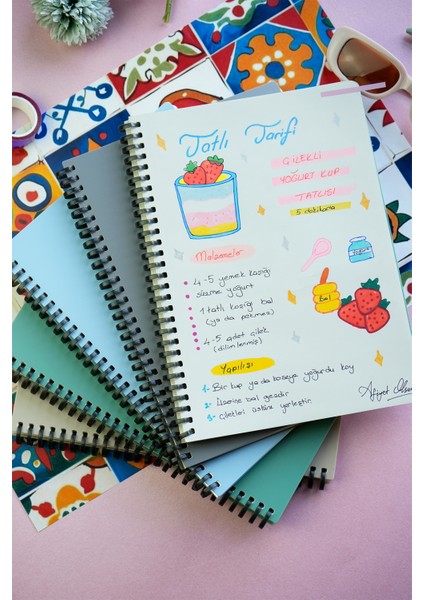 Tatlı Tarifi
ÇİLEKLİ
YOĞURT KUP
TATLISI
5 dakikada
Malzemeler
4-5 yemek kaşığı
süzme yoğurt
1 tatlı kaşığı bal
(ya da pekmez)
4-5 adet çilek
(dilimlenmiş)
Bal
Yapılışı
1- Bir kup ya da kaseye yoğurdu koy
2- Üzerine bal gezdir
3- Çilekleri üstüne yerleştir.
Afiyet Olsun